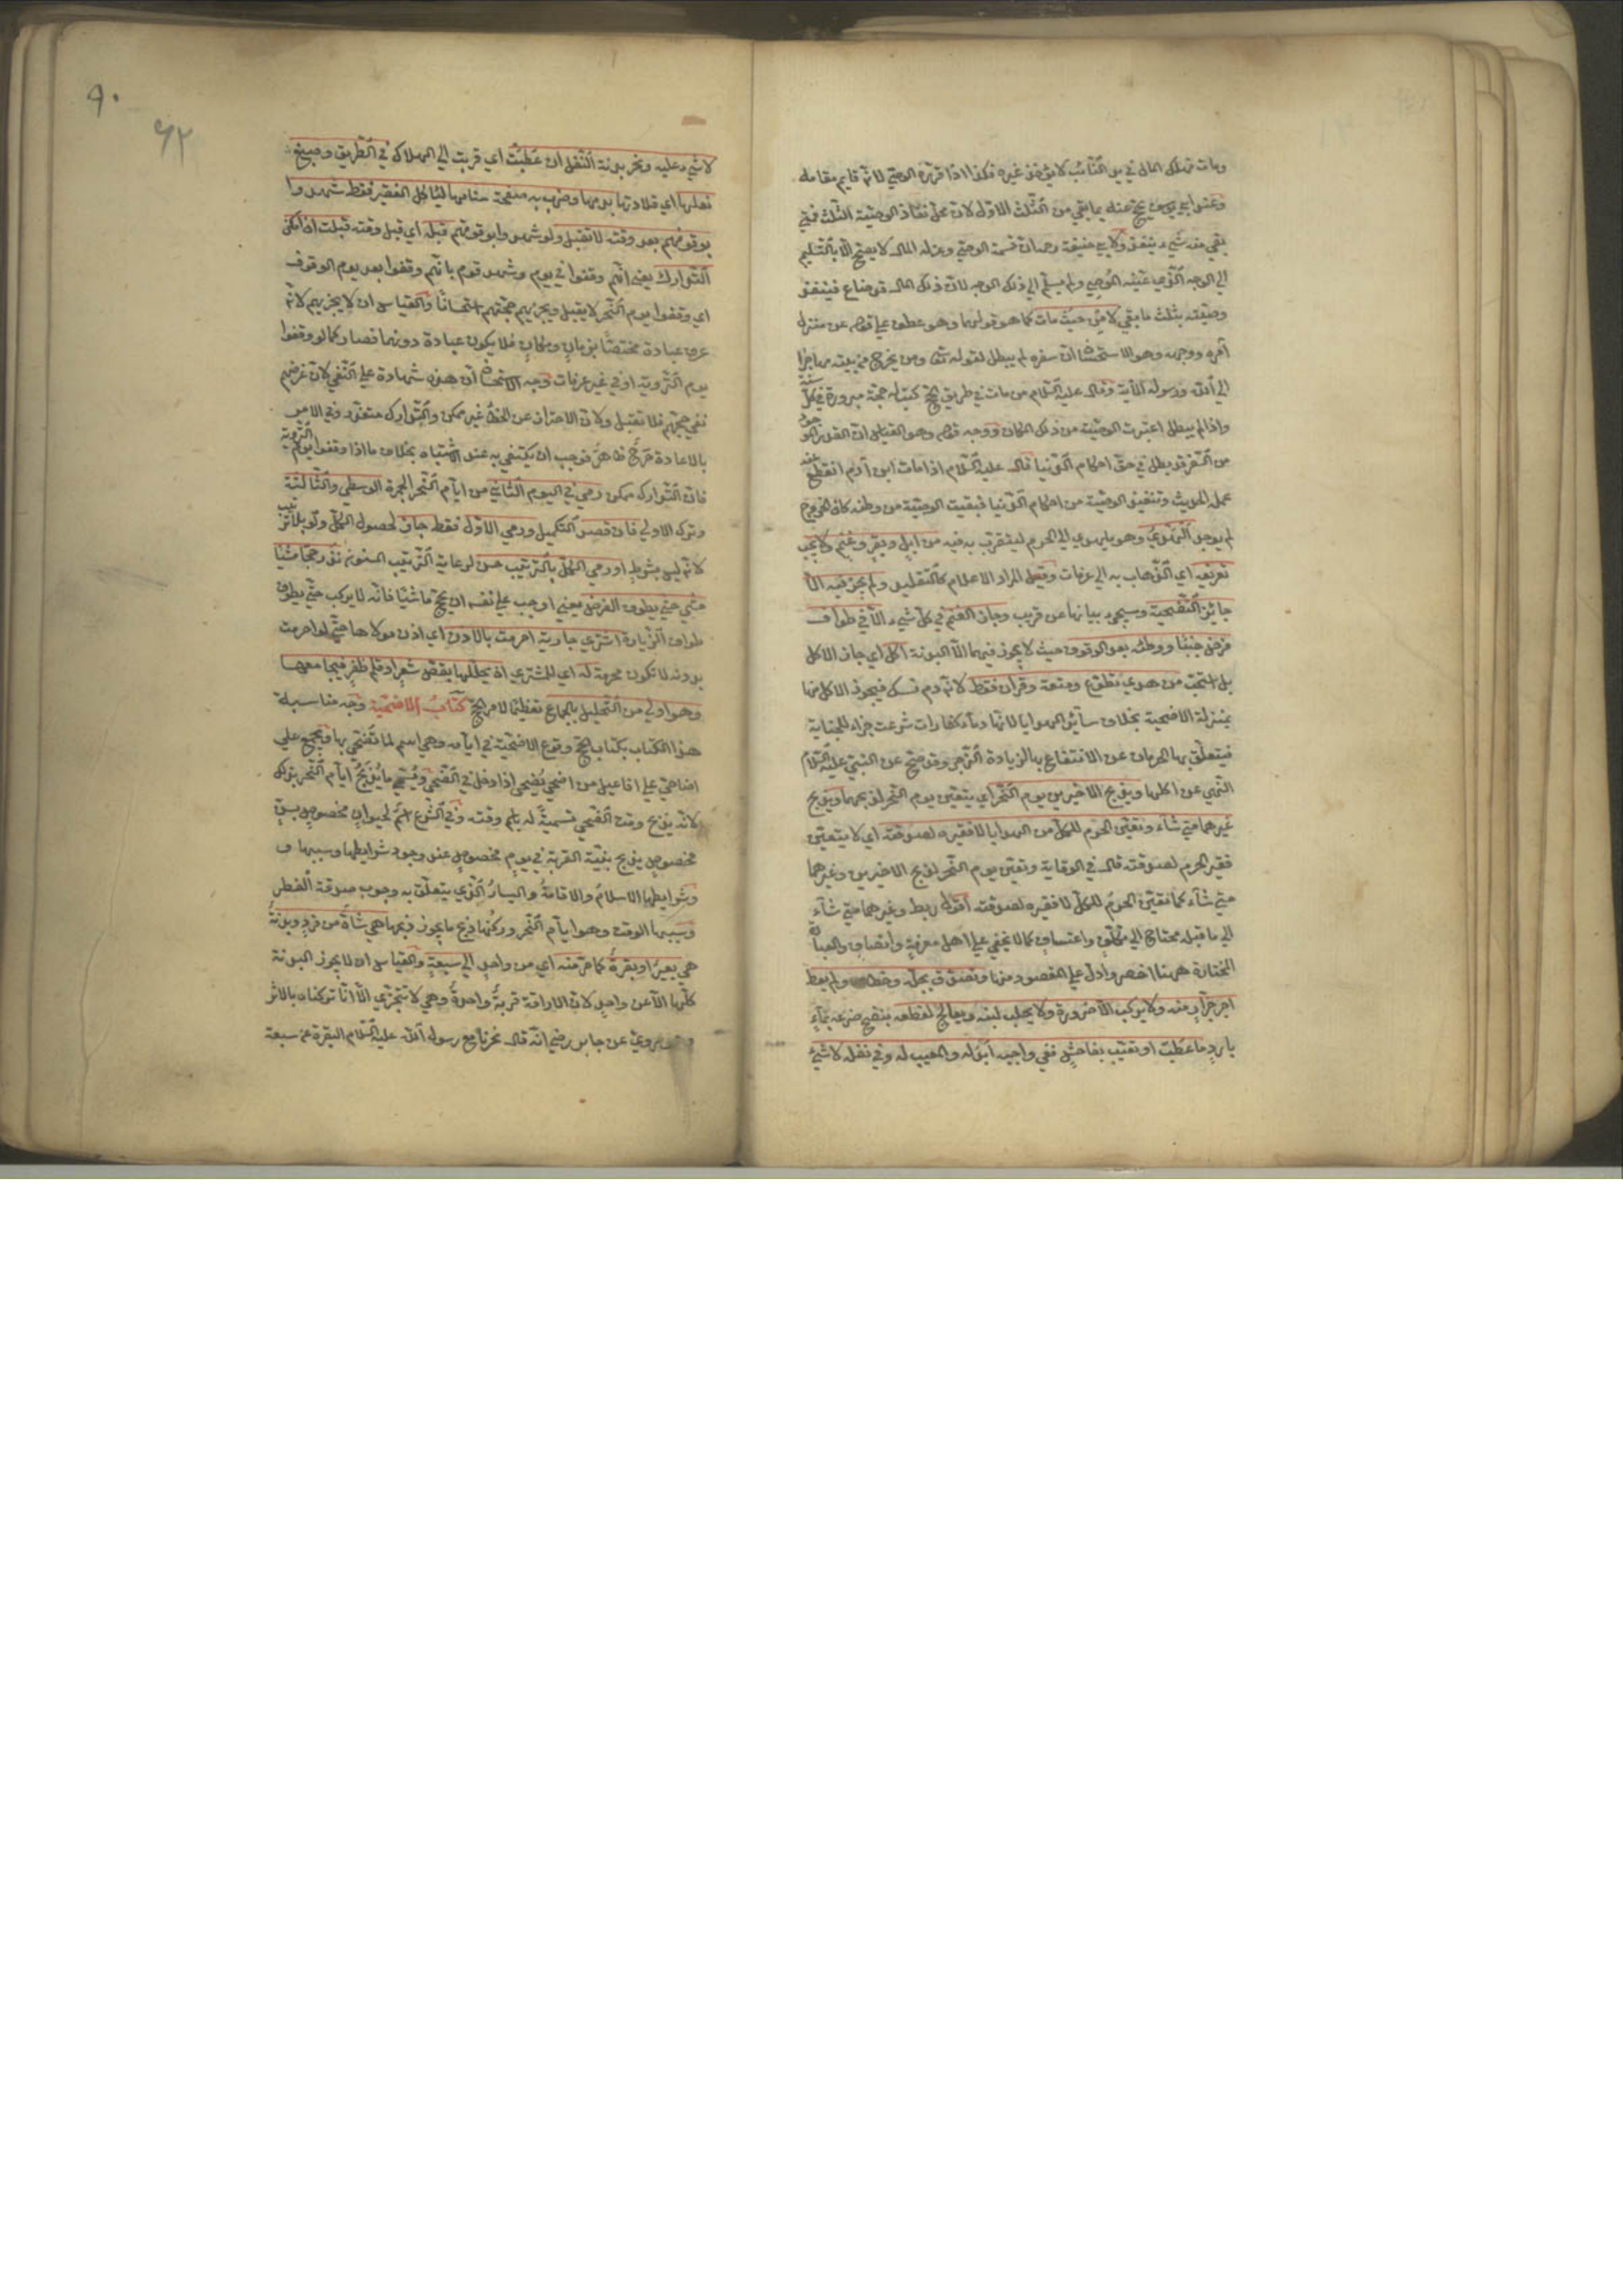 ومات فهلك المال في يد النائب لا يؤخذ غيره فكذا اذا قرره الوصي لانه قايم مقامه
وعند ابي يوسف يحج عنه بما بقي من الثلث الاول لان محل نفاذ الوصية الثلث فمتى
بقي منه شيء ينفذ ولابي حنيفة رحمه ان قسمة الوصي وعزله المال لا يصح الا بالتسليم
الي الوجه الذي عينه الموصي ولم يسلم الي ذلك الوجه لان ذلك المال قد ضاع فينفذ
وصيته بثلث ما بقي لا من حيث مات كما هو قولهما وهو عطف علي قوله من منزل
آمره ووجهه وهو الاستحسان ان سفره لم يبطل لقوله تع ومن يخرج من بيته مهاجرا
الي الله ورسوله الآية وقال عليه السلام من مات في طريق الحج كتب له حجة مبرورة في كل سنة
واذا لم يبطل اعتبرت الوصية من ذلك المكان ووجه قوله وهو القياس ان القدر الموجود
من السفر قد بطل في حق احكام الدنيا قال عليه السلام اذا مات ابن آدم انقطع عنه
عمله الحديث وتنفيذ الوصية من احكام الدنيا فبقيت الوصية من وطنه كان الخروج
لم يوجد الهدي وهو ما يهدي الي الحرم ليتقرب به فيه من ابل وبقر وغنم ولا يجب
تعريفه اي الذهاب به الي عرفات وقيل المراد الاعلام كالتقليد ولم يجز فيه الا
جائز التضحية وسيجيء بيانها عن قريب وجاز الغنم في كل شيء الا في طواف
فرض جنبا ووطئه بعد الوقوف حيث لا يجوز فيهما الا البدنة اكل اي جاز الاكل
بل استحب من هدي تطوع ومتعة وقران فقط لانه دم نسك فيجوز الاكل منها
بمنزلة الاضحية بخلاف سائر الهدايا لانها دماء كفارات شرعت جزاء للجناية
فيتعلق بها الحرمان عن الانتفاع بها لزيادة الزجر وقد صح عن النبي عليه السلام
النهي عن اكلها وتعين يوم النحر اي يتعين يوم النحر لذبحهما ويذبح
غيرهما متي شاء وتعين الحرم للكل من الهدايا لا فقيره لصدقته اي لا يتعين
فقير الحرم لصدقته قال في الوقاية وتعين يوم النحر لذبح الاخيرين وغيرهما
متي شاء كما تعين الحرم للكل لا فقيره لصدقته اقول ربط وغيرهما متي شاء
الي ما قبله محتاج الي تكلف واعتساف كما لا يخفي علي اهل معرفة وانصاف والعبارة
المختارة ههنا اخصر وادل علي المقصود منها وتصدق بجله وخطامه ولم يعط
اجر جزار منه ولا يركب الا ضرورة ولا يحلب لبنه ويعالج لقطعه بنضح ضرعه بماء
بارد ما عطب او تعيب بفاحش ففي واجبه ابدله والمعيب له وفي نفله لا شيء
٩٠
٩٢
لا شيء عليه ونحر بدنة النفل ان عطبت اي قربت الي الهلاك في الطريق وصبغ
نعلها اي قلادتها بدمها وضرب به صفحة سنامها ليأكل الفقير فقط شهدوا
بوقوفهم بعد وقته لا تقبل ولو شهدوا بوقوفهم قبله اي قبل وقته قبلت ان امكن
التدارك يعني انهم وقفوا في يوم وشهد قوم بانهم وقفوا بعد يوم الوقوف
اي وقفوا يوم النحر لا يقبل ويجزيهم حجتهم استحسانا والقياس ان لا يجزيهم لانه
عرف عبادة مختصا بزمان ومكان فلا يكون عبادة دونهما فصار كما لو وقفوا
يوم التروية او في غير عرفات وجه الاستحسان ان هذه شهادة علي النفي لان غرضهم
نفي حجهم فلا تقبل ولان الاحتراز عن الخطأ غير ممكن والتدارك متعذر وفي الامر
بالاعادة حرج ظاهر فوجب ان يكتفي به عند الاشتباه بخلاف ما اذا وقفوا يوم التروية
فان التدارك ممكن رمي في اليوم الثاني من ايام النحر الجمرة الوسطي والثالثة
وترك الاولي فان قصد التكميل ورمي الاول فقط جاز لحصول الكل ولو بلا ترتيب
لانه ليس بشرط او رمي الكل بالترتيب حسن لرعاية الترتيب المسنون نذر حجا مشيا
مشي حتي يطوف الفرض يعني اوجب علي نفسه ان يحج ماشيا فانه لا يركب حتي يطوف
طواف الزيارة اشتري جارية احرمت بالاذن اي اذن مولاها حتي لو احرمت
بدونه لا تكون محرمة له اي للمشتري ان يحللها بقص شعر او قلم ظفر فيجامعها
وهو اولي من التحليل بالجماع تعظيما لامر الحج كتاب الاضحية وجه مناسبة
هذا الكتاب بكتاب الحج وقوع الاضحية في ايامه وهي اسم لما تضحي بها وتجمع علي
اضاحي علي افاعيل من اضحي يضحي اذا دخل في الضحي ويسمي ما يذبح ايام النحر بذلك
لانه يذبح وقت الضحي تسمية له باسم وقته وفي الشرع اسم لحيوان مخصوص بسن
مخصوص يذبح بنية القربة في يوم مخصوص عند وجود شرايطها وسببها و
وشرايطها الاسلام والاقامة واليسار الذي يتعلق به وجوب صدقة الفطر
وسببها الوقت وهو ايام النحر وركنها ذبح ما يجوز ذبحها هي شاة من فرد وبدنة
هي بعير او بقرة كما مر منه اي من واحد الي سبعة والقياس ان لا يجوز البدنة
كلها الا عن واحد لان الاراقة قربة واحدة وهي لا تتجزي الا انا تركناه بالاثر
روي عن جابر رضي انه قال نحرنا مع رسول الله عليه السلام البقرة عن سبعة